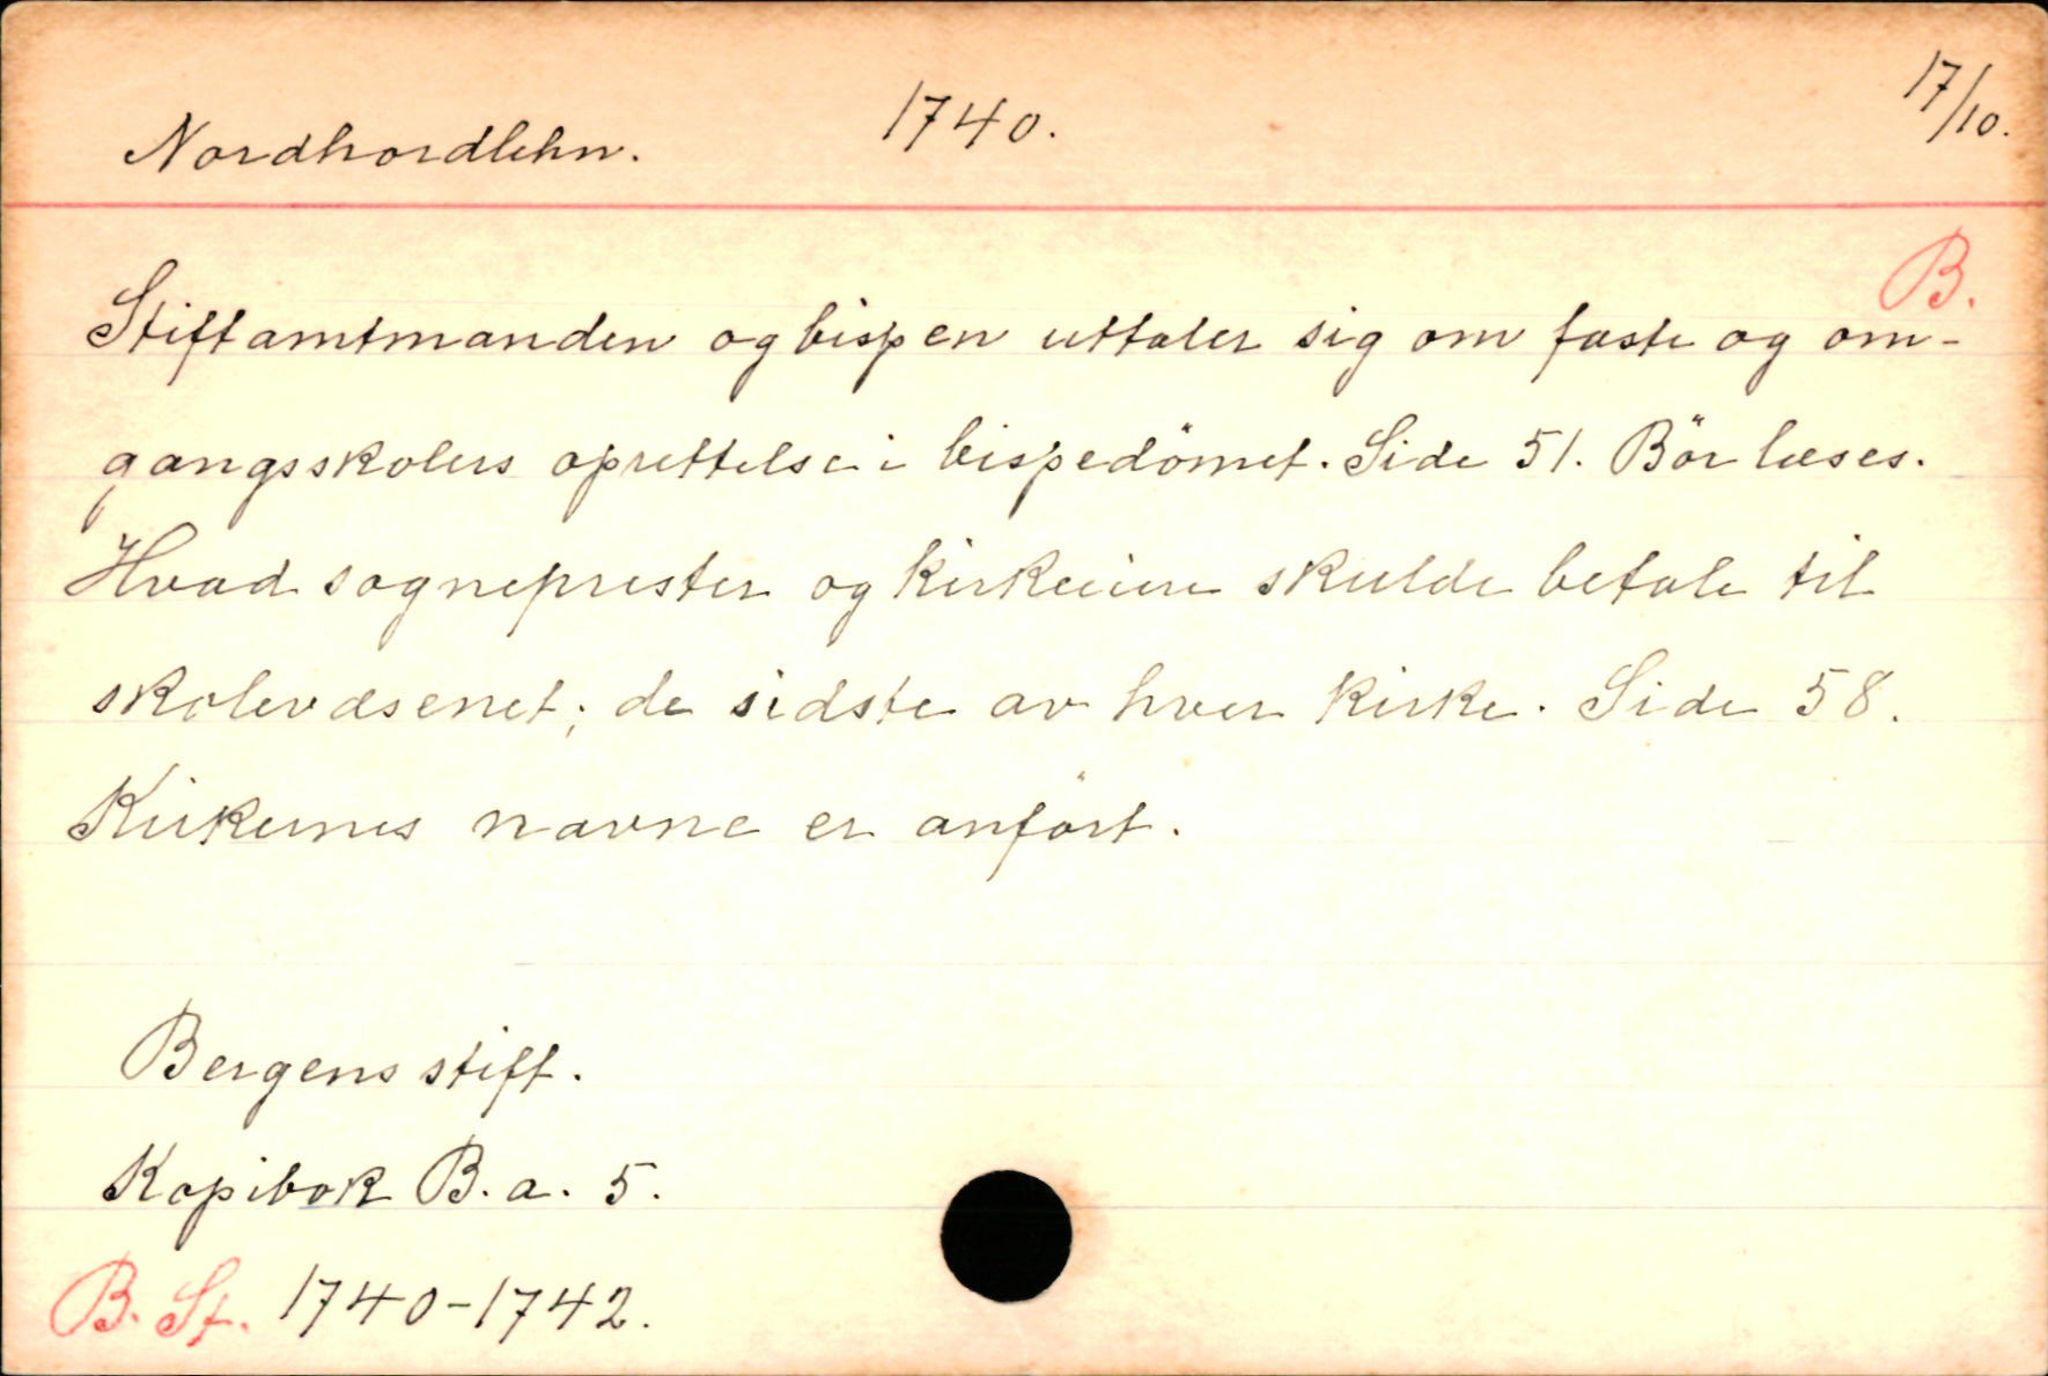 Nordhordlehn. 1740. 17/10.
B.
Stiftamtmanden og bispen uttaler sig om faste og om-
gangsskolers oprettelse i bispedömet. Side 51. Bör læses.
Hvad sogneprester og kirkeeiere skulde betale til
skolevæsenet; de sidste av hver kirke. Side 58.
Kirkernes navne er anfört.
Bergens stift.
Kopibok B. a. 5.
B. St. 1740-1742.